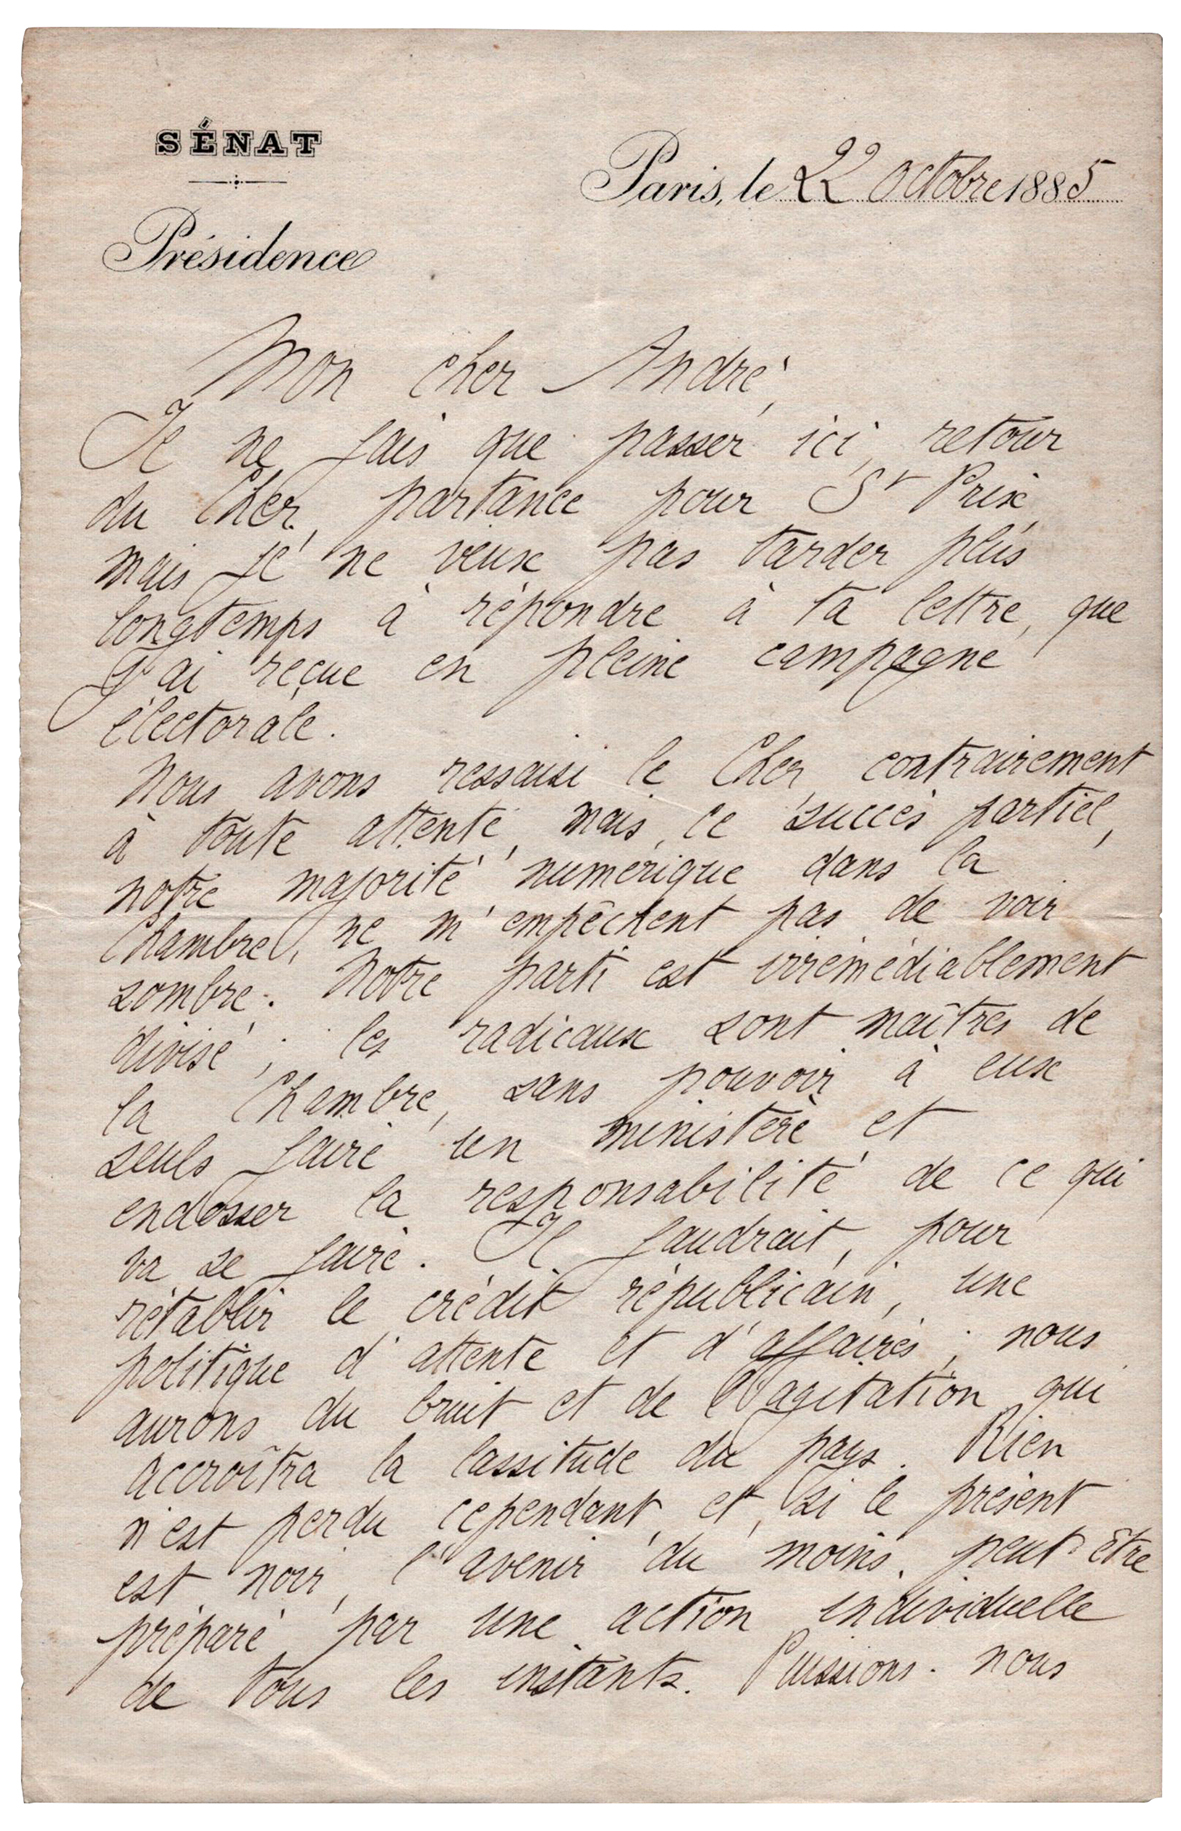 SÉNAT
Présidence
Paris, le 22 octobre 1885
Mon cher André,
Je ne fais que passer ici, retour
du Cher, partance pour St Prix
mais je ne veux pas tarder plus
longtemps à répondre à ta lettre, que
j'ai reçue en pleine campagne
électorale.
Nous avons ressaisi le Cher, contrairement
à toute attente, mais ce succès partiel,
notre majorité numérique dans la
Chambre, ne m'empêchent pas de voir
sombre. Notre parti est irrémédiablement
divisé ; les radicaux sont maîtres de
la Chambre, sans pouvoir à eux
seuls faire un ministère et
endosser la responsabilité de ce qui
va se faire. Il faudrait, pour
rétablir le crédit républicain, une
politique d'attente et d'affaires ; nous
aurons du bruit et de l'agitation qui
accroîtra la lassitude du pays. Rien
n'est perdu cependant, et, si le présent
est noir, l'avenir du moins, peut être
préparé par une action individuelle
de tous les instants. Puissions-nous